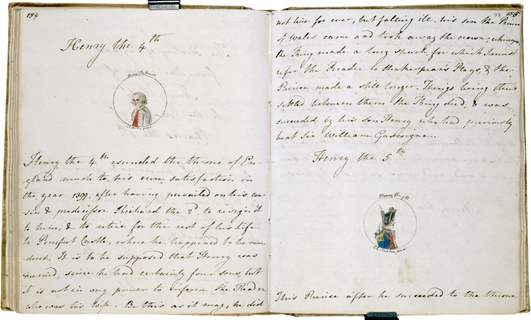 194
Henry the 4th
Henry the 4th
Henry the 4th ascended the throne of En-
gland much to his own satisfaction in
the year 1399, after having prevailed on his cou-
sin & predecessor Richard the 2d, to resign it
to him, & to retire for the rest of his life
to Pomfret Castle, where he happened to be mur-
dered. It is to be supposed that Henry was
married, since he had certainly four sons, but
it is not in my power to inform the Reader
who was his Wife. Be this as it may, he did
not live for ever, but falling ill, his son the Prince
of Wales came and took away the crown; whereupon
the King made a long speech, for which I must
refer the Reader to Shakespear's Plays, & the
Prince made a still longer. Things being thus
settled between them the King died, & was
succeeded by his son Henry who had previously
beat Sir William Gascoigne.
Henry the 5th
Henry the 5th
This Prince after he succeeded to the throne